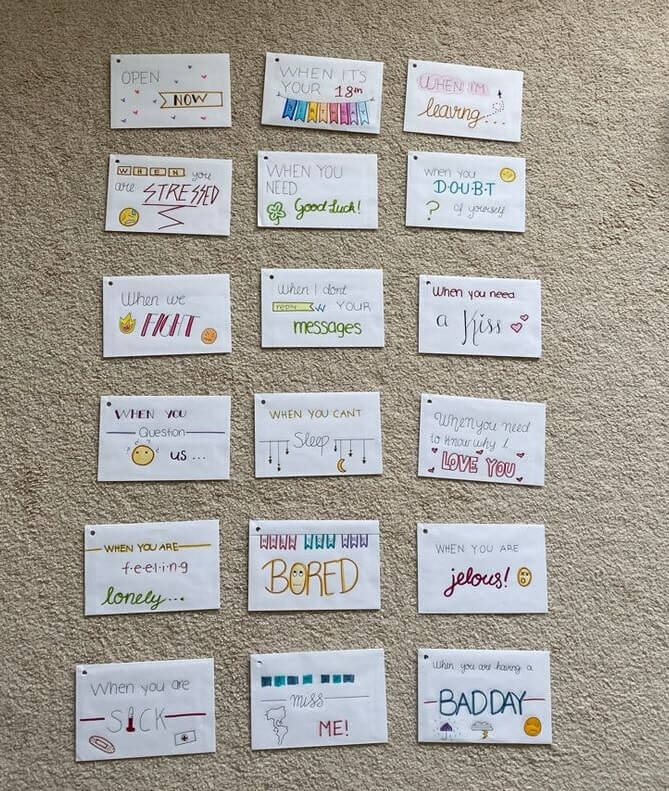 OPEN
NOW
WHEN IT'S
YOUR 18th
BIRTHDAY
WHEN I'M
leaving...
WHEN you
are STRESSED
WHEN YOU
NEED
Good Luck!
when you
D·O·U·B·T
? of yourself
When we
FIGHT
When I dont
reply YOUR
messages
When you need
a Kiss
WHEN YOU
Question
us...
WHEN YOU CAN'T
Sleep
When you need
to know why I
LOVE YOU
WHEN YOU ARE
f·e·e·l·i·n·g
lonely...
WHEN YOU ARE
BORED
WHEN YOU ARE
jelous!
When you are
SICK
miss
ME!
When you are having a
BAD DAY